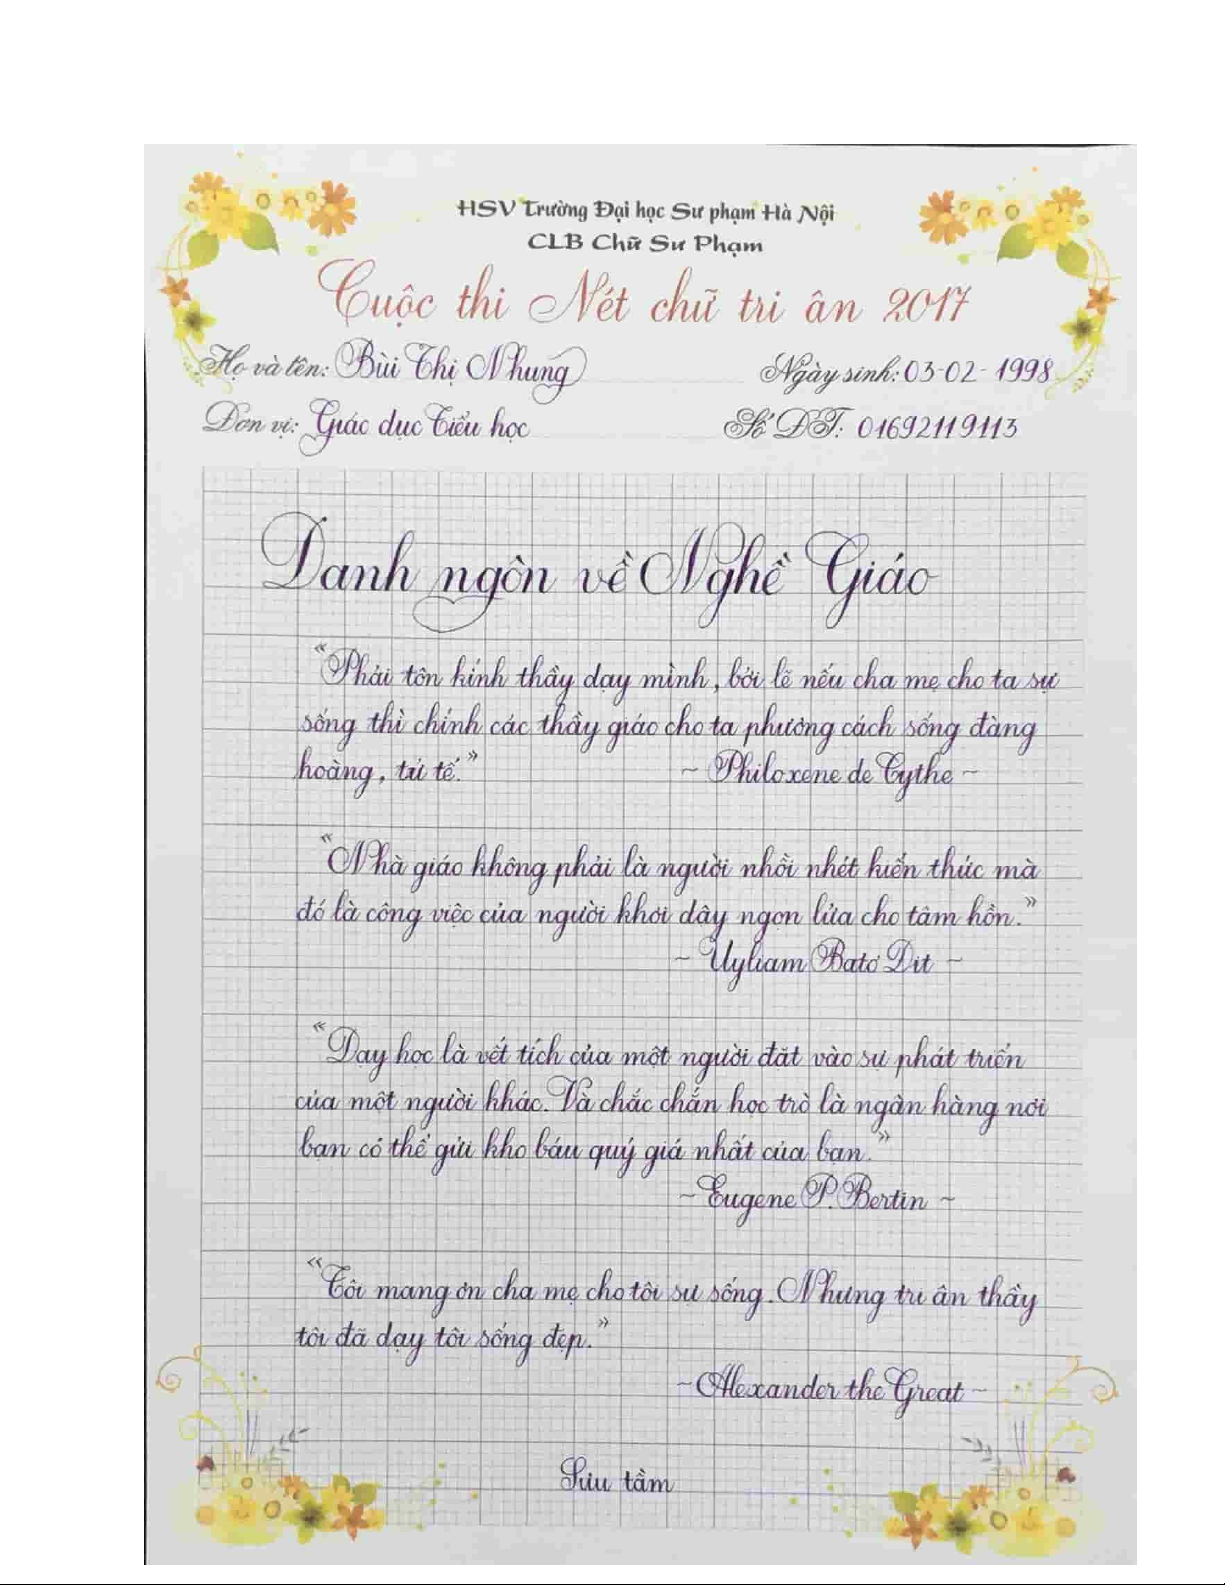 HSV Trường Đại học Sư phạm Hà Nội
CLB Chữ Sư Phạm
Cuộc thi Nét chữ tri ân 2017
Họ và tên: Bùi Thị Nhung
Ngày sinh: 03-02-1998
Đơn vị: Giác dục Tiểu học
Số ĐT: 01692119113
Danh ngôn về Nghề Giáo
"Phải tôn kính thầy dạy mình, bởi lẽ nếu cha mẹ cho ta sự
sống thì chính các thầy giáo cho ta phương cách sống đàng
hoàng, tử tế."
~ Philoxene de Cythe ~
"Nhà giáo không phải là người nhồi nhét kiến thức mà
đó là công việc của người khơi dậy ngọn lửa cho tâm hồn."
~ Uyliam Batơ Dit ~
"Dạy học là vết tích của một người đặt vào sự phát triển
của một người khác. Và chắc chắn học trò là ngân hàng nơi
bạn có thể gửi kho báu quý giá nhất của bạn."
~ Eugene P. Bertin ~
"Tôi mang ơn cha mẹ cho tôi sự sống. Nhưng tri ân thầy
tôi đã dạy tôi sống đẹp."
~ Alexander the Great ~
Sưu tầm